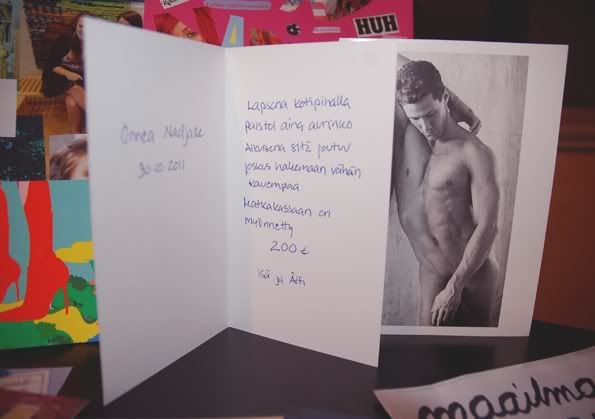 HUH
Onnea Nadjalle
30.10.2011
Lapsena kotipihalla
paistoi aina aurinko
Aikuisena sitä joutuu
joskus hakemaan vähän
kauempaa
Matkakassaan on
myönnetty
200 €
Isä ja Äiti
maailma